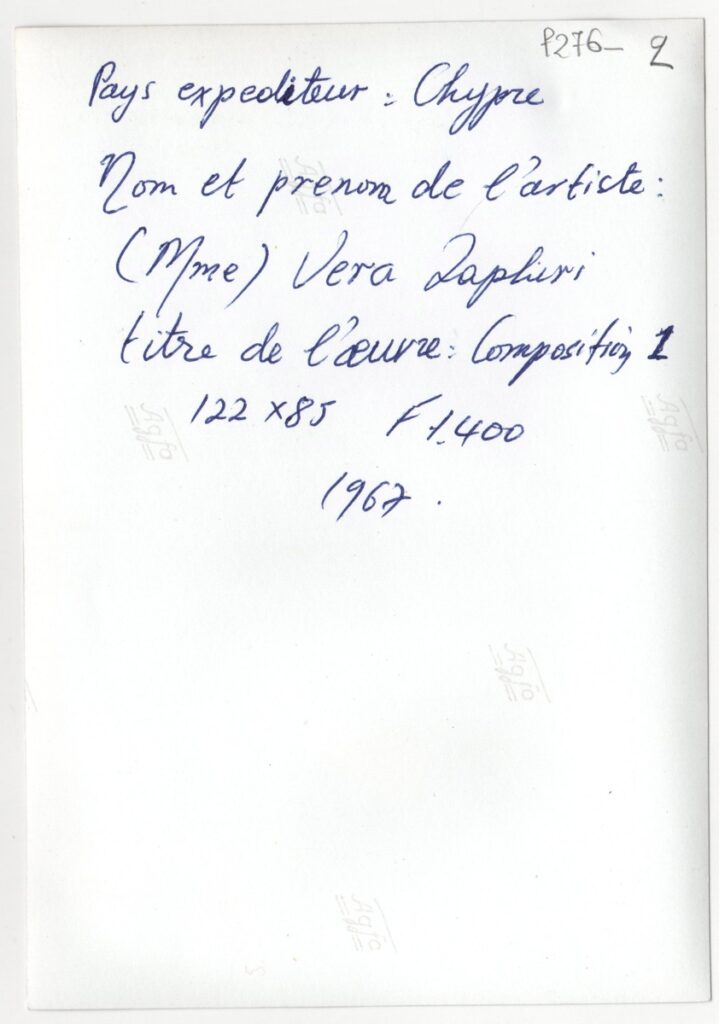 P276-2
Pays expediteur : Chypre
Nom et prenom de l'artiste :
(Mme) Vera Zaphiri
titre de l'œuvre : Composition 1
122 x 85 F 1.400
1967.
Agfa
Agfa
Agfa
Agfa
Agfa